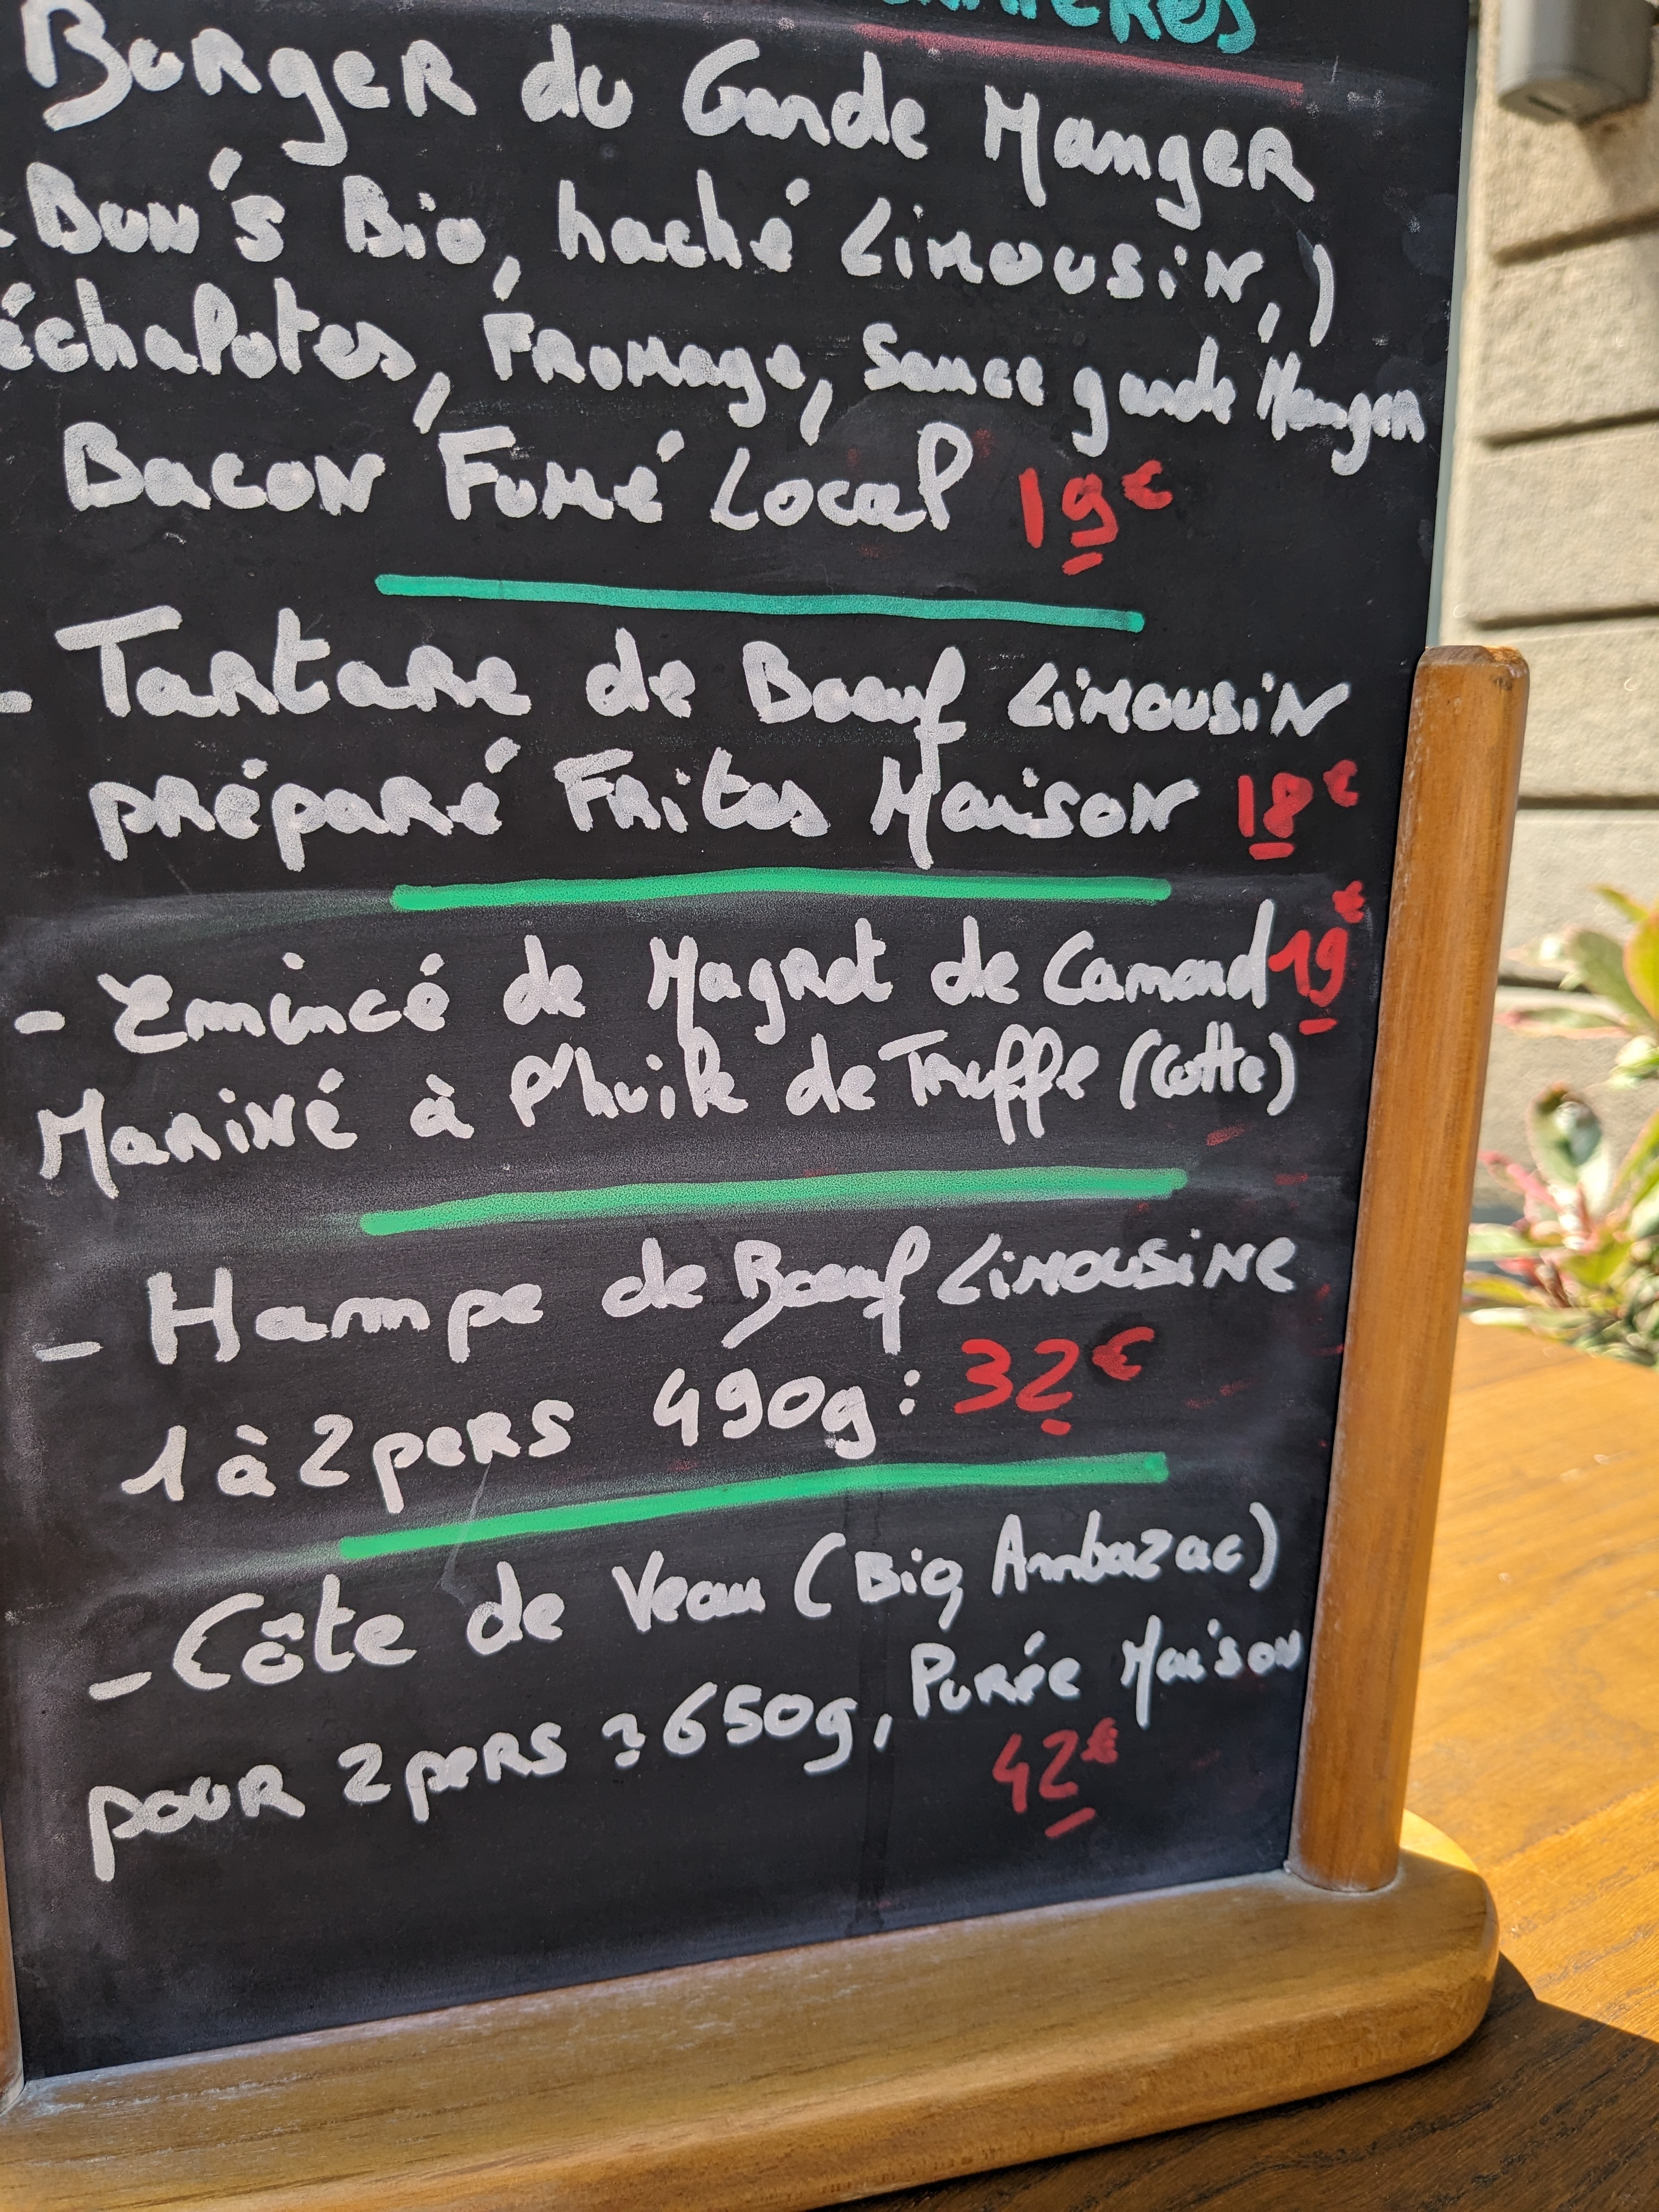 Burger du Garde Manger
- Bun's Bio, haché Limousin,)
échalotes, Fromage, Sauce garde Manger
Bacon Fumé Local 19€
- Tartare de Boeuf Limousin
préparé Frites Maison 18€
- Emincé de Magret de Canard 19€
Mariné à l'huile de Truffe (Cotte)
- Hampe de Boeuf Limousine
1 à 2 pers 490g : 32€
- Côte de Veau (Bio, Ambazac)
pour 2 pers : 650g, Purée Maison
42€